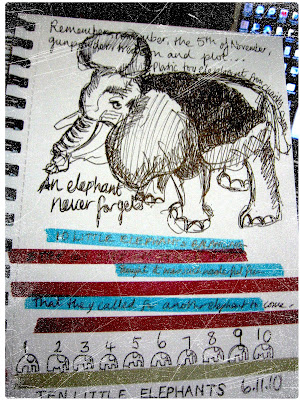 Remember, remember the 5th of November,
gunpowder, treason and plot...
An elephant
never forgets
TEN LITTLE ELEPHANTS BALANCING
That they called for another elephant to come.
1 2 3 4 5 6 7 8 9 10
TEN LITTLE ELEPHANTS 6.11.10